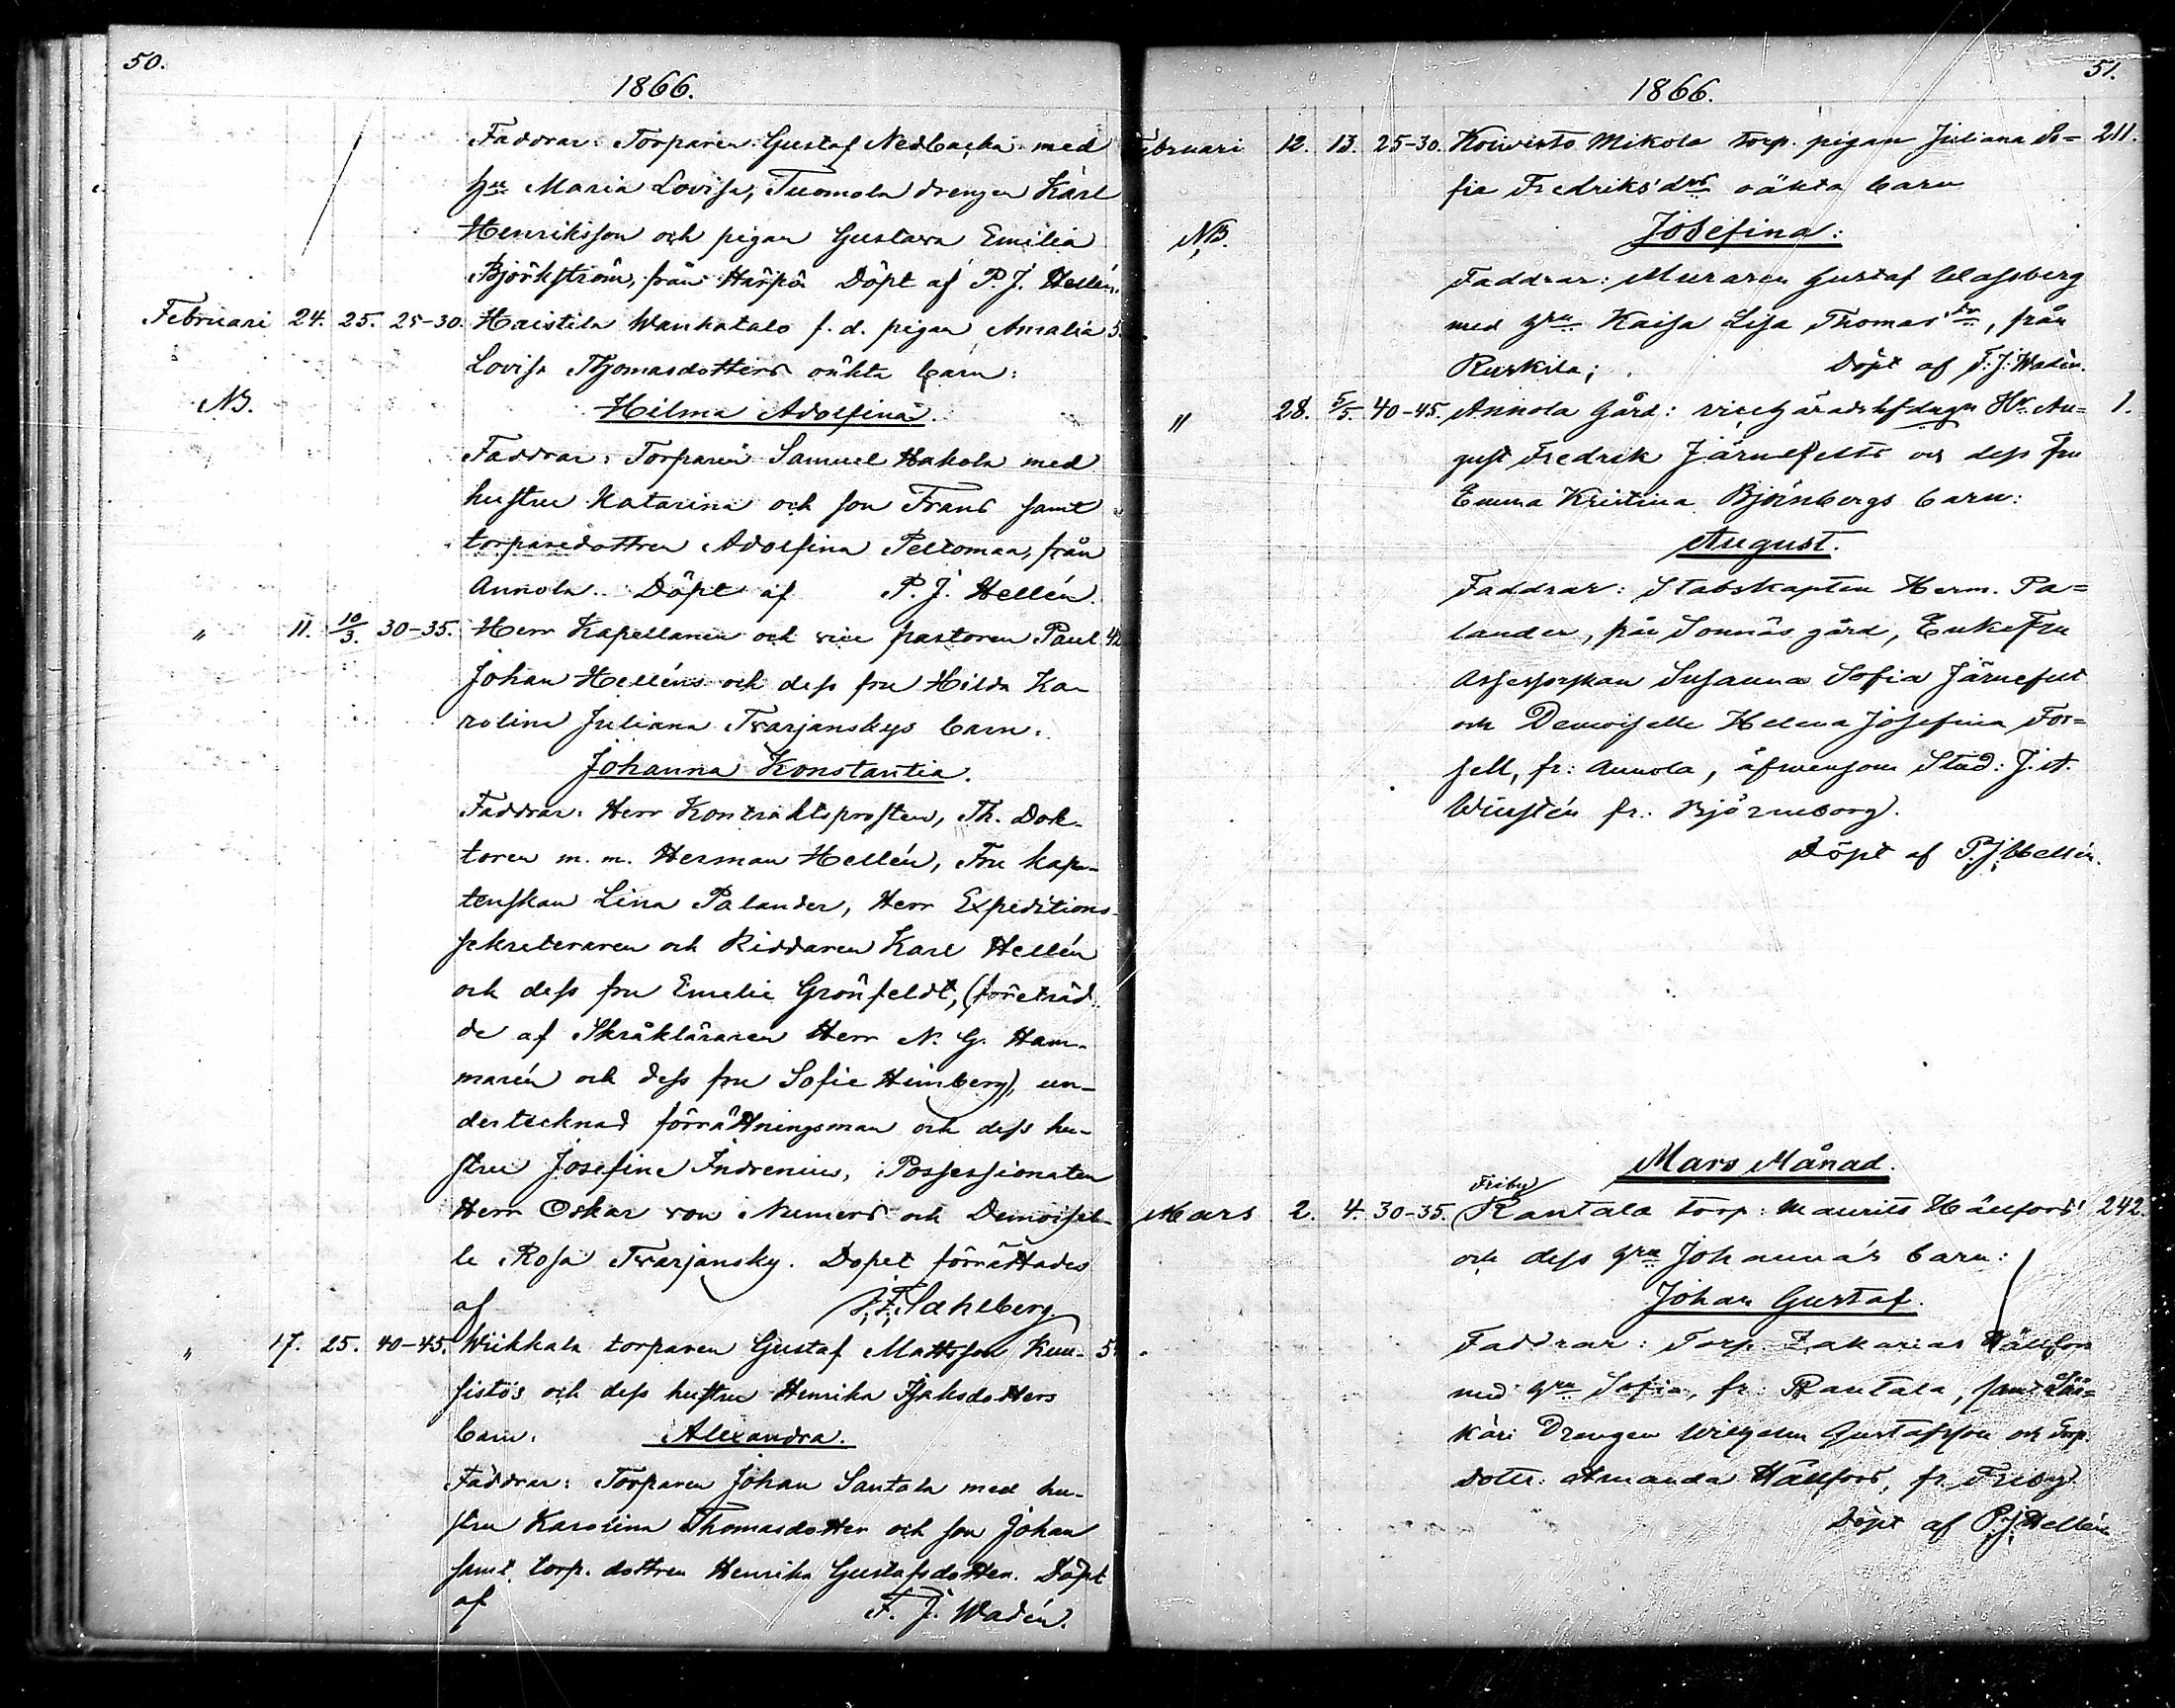 50.
1866.
Faddrar: Torparen Gustaf Nedbacka med
hu Maria Lovisa, Tuomola drengen Karl
Henriksson och pigan Gustava Emilia
Björkström, från Harpö Döpt af P. J. Hellén.
Februari 24. 25. 25-30. Haistila Wanhatalo f. d. pigan Amalia 5
Lovisa Thomasdotters oäkta barn:
NB. Hilma Adolfina.
Faddrar: Torparen Samuel Hakola med
hustru Katarina och son Frans samt
torparedottren Adolfina Peltomaa, från
Annola. Döpt af P. J. Hellén.
" 11. 10/3. 30-35. Herr Kapellanen och vice pastoren Paul 42
Johan Helléns och dess fru Hilda Ka-
rolina Juliana Tvarjanskys barn.
Johanna Konstantia.
Faddrar: Herr Kontraktsprosten, Th. Dok-
toren m. m. Herman Hellén, Fru kap-
tenskan Lina Palander, Herr Expeditions-
sekreteraren och Riddaren Karl Hellén
och dess fru Emelie Grönfeldt, (företräd-
de af Skråkläraren Herr N. G. Ham-
marén och dess fru Sofie Heinberg), un-
dertecknad förrättningsman och dess hu-
stru Josefine Indrenius, Possessionaten
Herr Oskar von Numers och Demoisel-
le Rosa Tvarjansky. Dopet förrättades
af J. F. Sahlberg
" 17. 25. 40-45. Wiikkala torparen Gustaf Mattsson Kuu- 5
sistös och dess hustru Henrika Isaksdotters
barn. Alexandra.
Faddrar: Torparen Johan Santala med hu-
stru Karolina Thomasdotter och son Johan
samt torp. dottren Henrika Gustafsdotter. Döpt
af F. J. Wadén.
51.
1866.
Februari 12. 13. 25-30. Koivisto Mikola torp. pigan Juliana So- 211.
fia Fredriks drs oäkta barn
Josefina:
NB.
Faddrar: Muraren Gustaf Wassberg
med hru Kaisa Lisa Thomas dr, från
Ruskila; Döpt af F. J. Wadén.
" 28. 5/5. 40-45. Annola Gård: vice häradshfdngn Hr Au- 1.
gust Fredrik Järnefelts och dess fru
Emma Kristina Björnbergs barn:
August.
Faddrar: Stabskapten Herm. Pa-
lander, från Sonnäs gård, EnkeFru
Assessorskan Susanna Sofia Järnefelt
och Demoiselle Helena Josefina For-
sell, fr: Annola, äfvensom Stud: J. A.
fr. Björneborg.
Döpt af P. J. Hellén.
Mars Månad.
Friby
Mars 2. 4. 30-35. Rantala torp: Maurits Hällfors' 242.
och dess hru Johanna's barn:
Johan Gustaf.
Faddrar: Torp. Zakarias Hällfors
med hru Sofia, fr: Rantala, samt
Drengen Wilhelm Gustafsson och Torp.
dottr. Amanda Hällfors, fr. Friby.
Döpt af P. J. Hellén